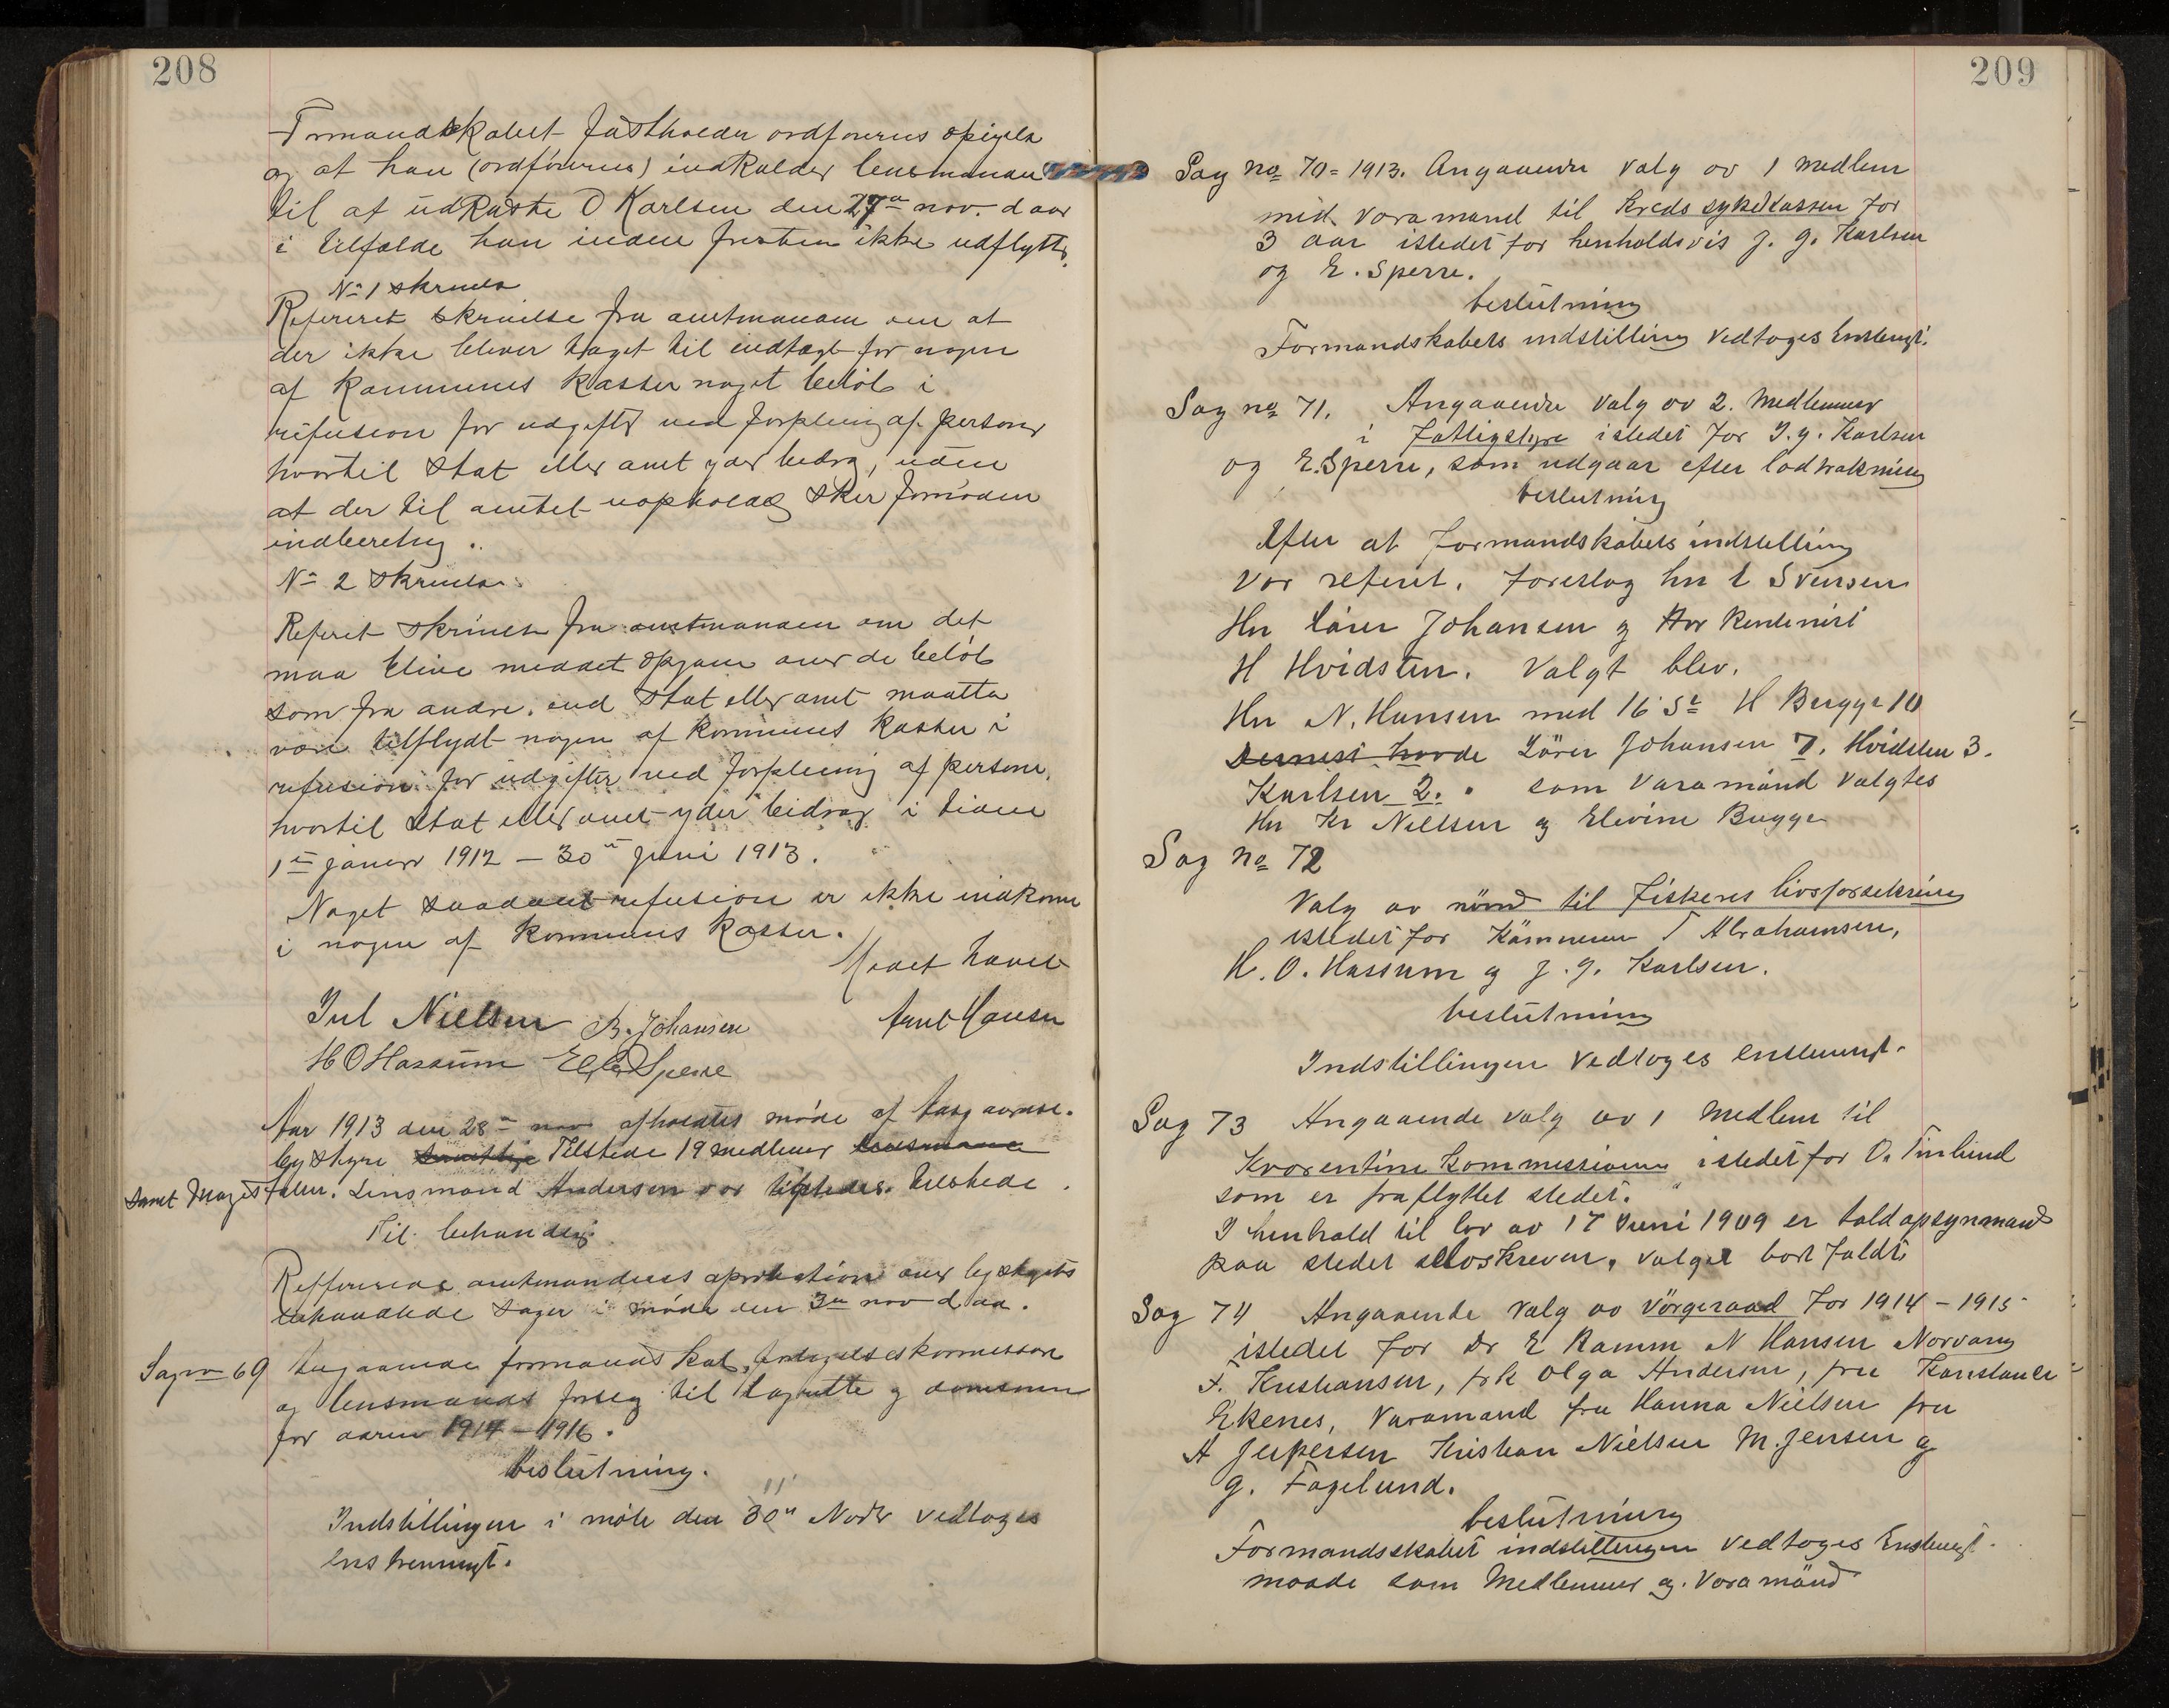 208
Formandskabet fastholder ordførerens opsigelse
og at han (ordføreren) indkalder lensmanden
til at udkaste O Karlsen den 27de nov. d aar
i tilfælde han inden fristen ikke udflytter.
No 1 skrivelse
Refereret skrivelse fra amtmanden om at
der ikke bliver taget til indtægt for nogen
af kommunes kasser noget beløb i
refusion for udgifter ved forpleining af personer
hvortil stat eller amt yder bidrag, uden
at der til amtet uopholdelig sker fornøden
indberetning.
No 2 skrivelse
Referet skrivelse fra amtmanden om det
maa blive meddelt opgave over de beløb
som fra andre end stat eller amt maatte
være tilflydt nogen af kommunes kasser i
refusion for udgifter ved forpleining af personer
hvortil stat eller amt yder bidrag i tiden
1ste januar 1912 – 30te juni 1913.
Noget saadant refusion er ikke indkommet
i nogen af kommunes kasser.
Mødet hævet
Jul Nielsen B. Johansen Arnt Hansen
H O Hassum Sperre
Aar 1913 den 28de nov afholdtes møde af
bystyre samtlige Tilstede 19 medlemer lensmand
samt Magistraten. Lensmand Andersen var tilstede.
Til behandling
Refereredes amtmandens aprobation over bystyrets
behandlede sager i møde den 3de nov d aa.
Sag no 69 Angaaende formandskab, forligelseskommission
og lensmands forslag til lagrette og domsmænd
for aarene 1914 – 1916.
beslutning.
11
Indstillingen i møte den 30te Novbr vedtoges
enstemmigt.
209
Sag no 70 = 1913. Angaaende valg av 1 medlem
med varamand til Kreds sykekassen for
3 aar istedet for henholdsvis J. G. Karlsen
og E. Sperre.
beslutning
Formandskabets indstilling vedtoges Enstemigt.
Sag no 71. Angaaende valg av 2. medlemmer
i Fattigstyre istedet for J. G. Karlsen
og E. Sperre, som udgaar efter lodtrækning
beslutning
Efter at formandskabets indstilling
var referet, foreslog hr E Svensen
Hr Lærer Johansen og Hr Kenteneri
H Hvidsten. Valgt blev.
Hr N. Hansen med 16 St H Bugge 10
Dernest havde Lärer Johansen 7. Hvidsten 3.
Karlsen 2. som varamænd valgtes
Hr Kr Nielsen og Elevine Bugge
Sag no 72
Valg av nämd til Fiskeres livsforsekring
istedet for Kämneren T Abrahamsen,
H. O. Hassum og J. G. Karlsen.
beslutning
Indstillingen vedtoges enstemigt.
Sag 73 Angaaende valg av 1 Medlem til
Kvorentine kommissionen istedet for O. Tinlund
som er fraflyttet stedet.
I henhold til lov av 17 Juni 1909 er toldopsynsmand
paa stedet selvskreven, valget bort faldt
Sag 74 Angaaende valg av Värgeraad for 1914 – 1915
istedet for Dr E Ramm N Hansen Norvang
F. Kristiansen, frk Olga Andersen, fru Konstance
Ekenes, Varamænd fru Hanna Nielsen fru
A Jespersen Kristian Nielsen M. Jensen og
G. Fagelund.
beslutning
Formandsskabet indstillingen vedtoges Enstemigt.
maade som Medlemmer og Varamänd